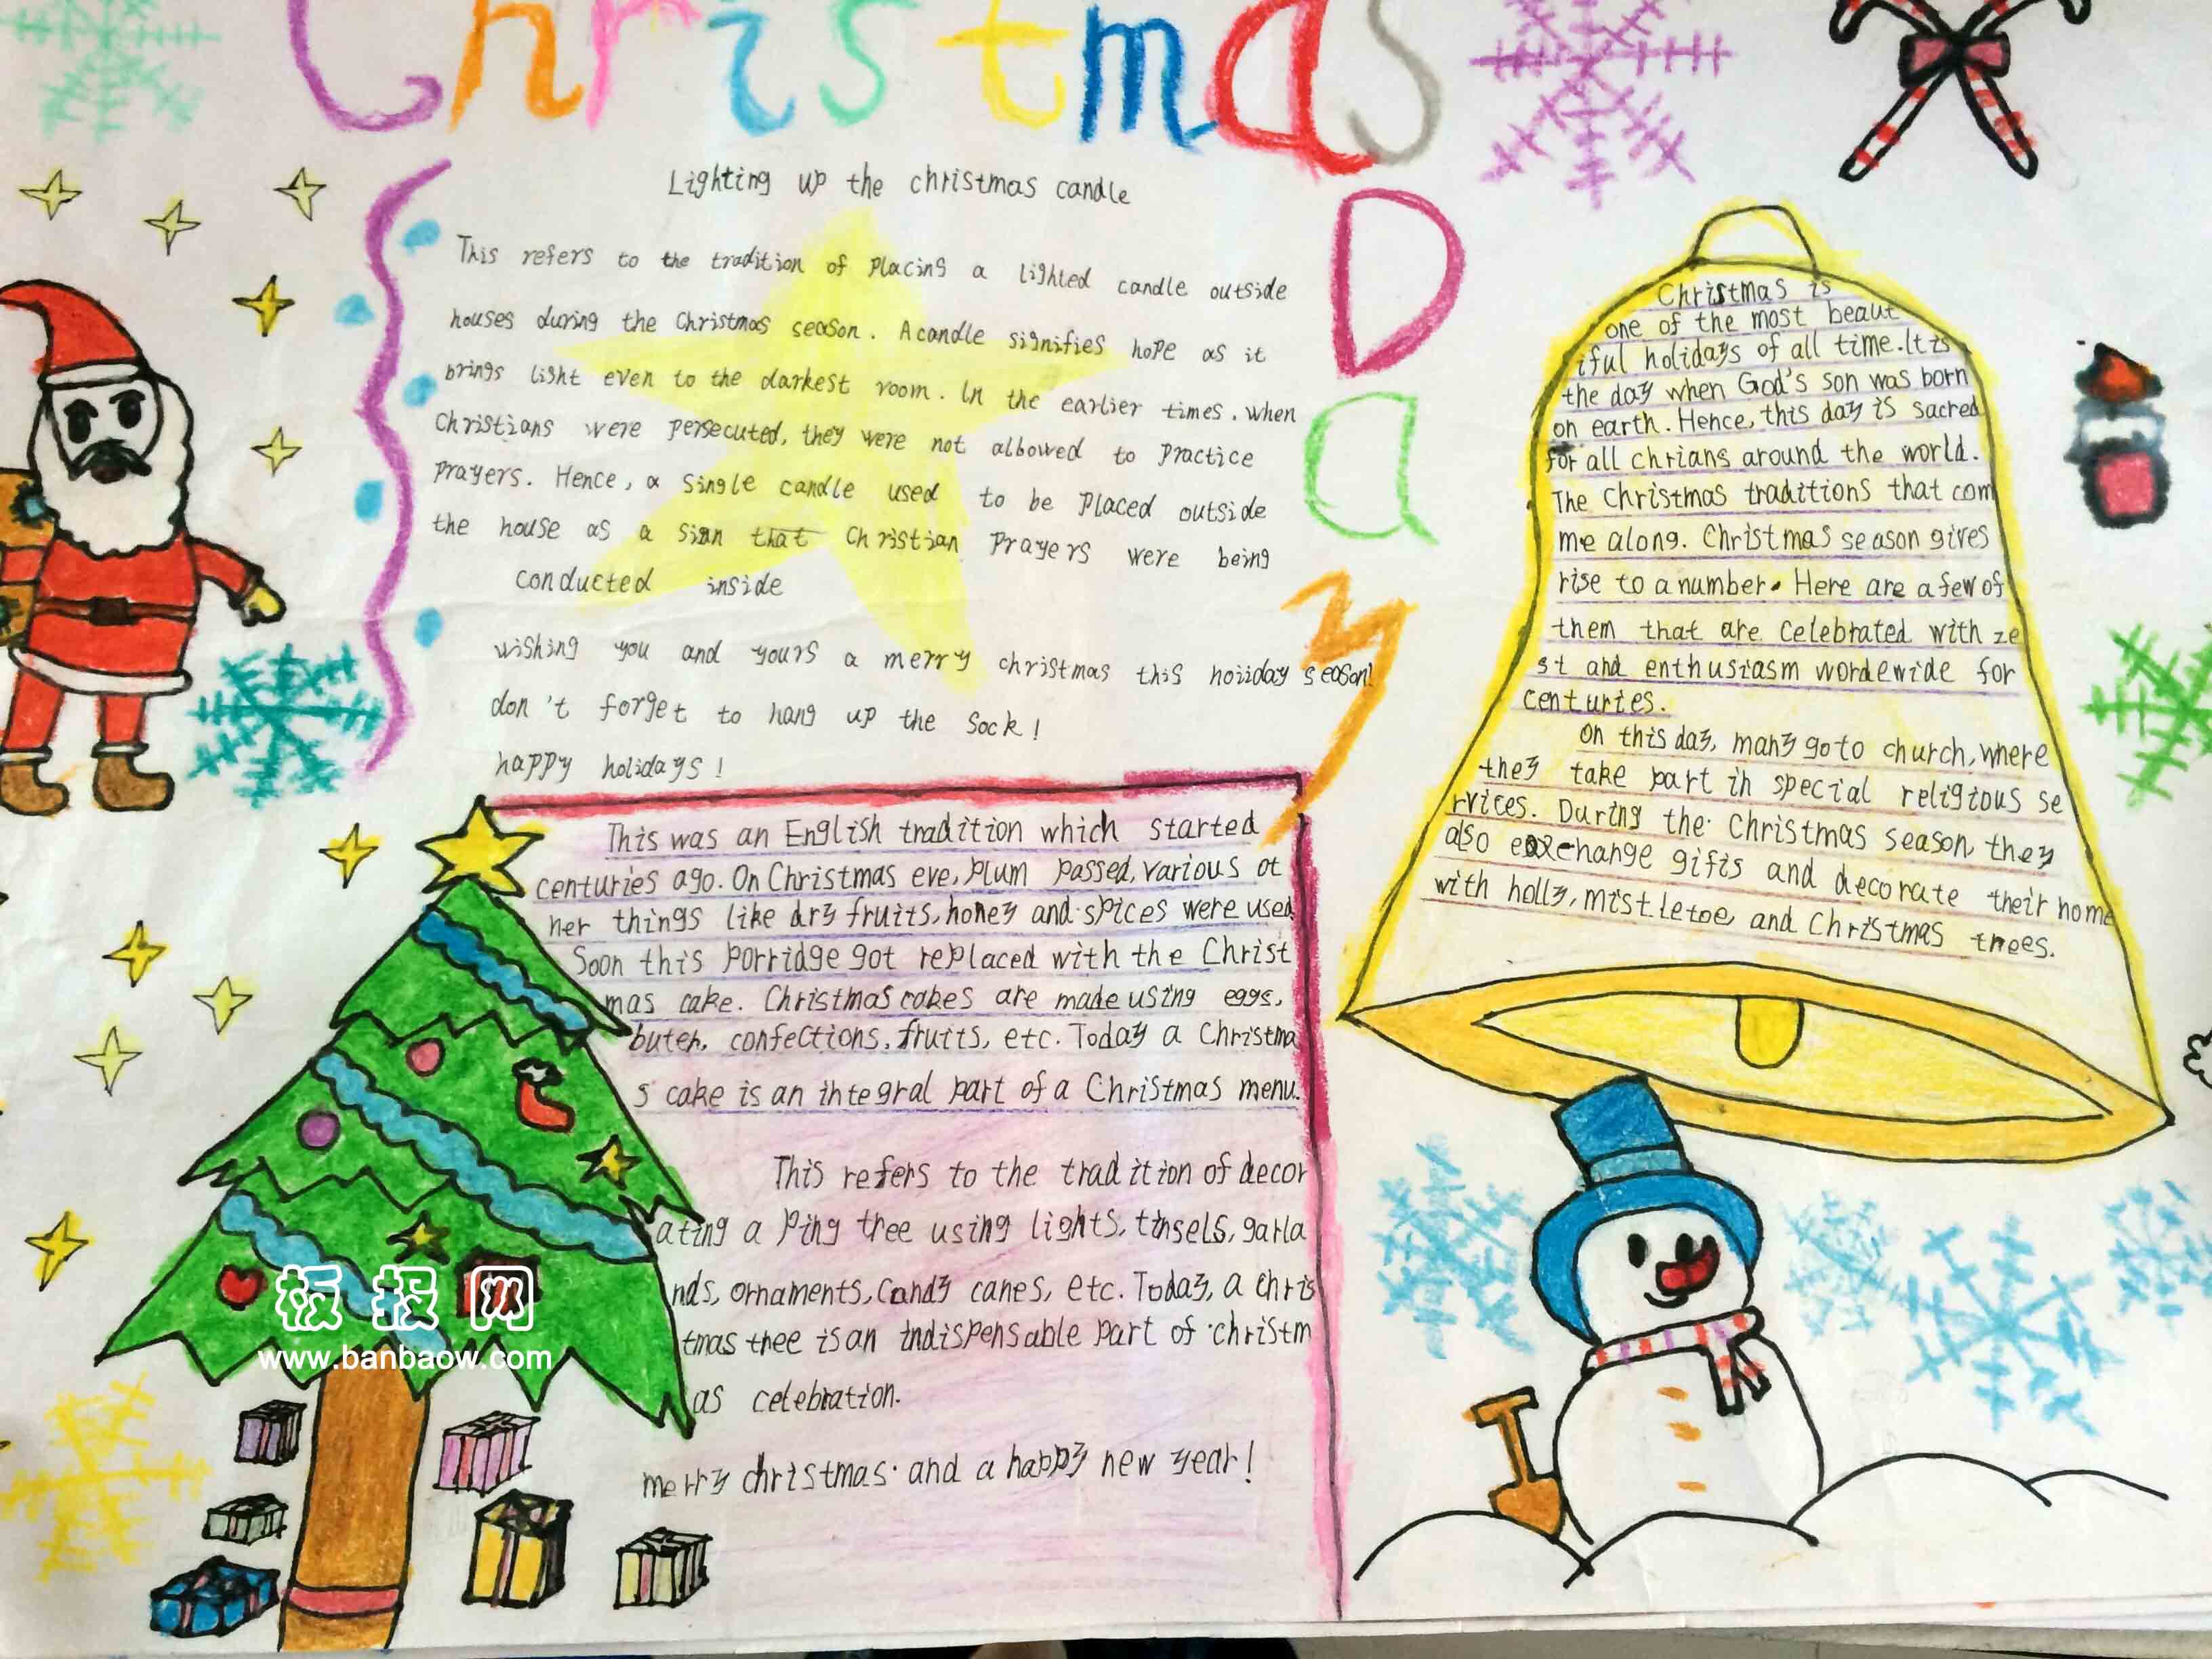 Christmas
Day
Lighting up the christmas candle
This refers to the tradition of placing a lighted candle outside
houses during the Christmas season. A candle signifies hope as it
brings light even to the darkest room. In the earlier times, when
Christians were persecuted, they were not albowed to practice
prayers. Hence, a single candle used to be placed outside
the house as a sign that Christian prayers were being
conducted inside
wishing you and yours a merry christmas this hoiiday season!
don't forget to hang up the sock!
happy holidays!
This was an English tradition which started
centuries ago. On Christmas eve, plum passed, various ot
her things like dry fruits, honey and spices were used.
Soon this porridge got replaced with the Christ
mas cake. Christmas cakes are made using eggs,
buter, confections, fruits, etc. Today a Christma
s cake is an integral part of a Christmas menu.
This refers to the tradition of decor
ating a ping tree using lights, tinsels, garla
nds, ornaments, candy canes, etc. Today, a chris
tmas tree is an indispensable part of christm
as celebration.
merry christmas and a happy new year!
Christmas is
one of the most beaut
iful holidays of all time. It is
the day when God's son was born
on earth. Hence, this day is sacred
for all chrians around the world.
The Christmas traditions that com
me along. Christmas season gives
rise to a number. Here are a few of
them that are celebrated with ze
st and enthusiasm wordewide for
centuries.
On this day, many go to church, where
they take part in special religious se
rvices. During the Christmas season, they
also exchange gifts and decorate their home
with holly, mistletoe, and Christmas trees.
板报网
www.banbaow.com